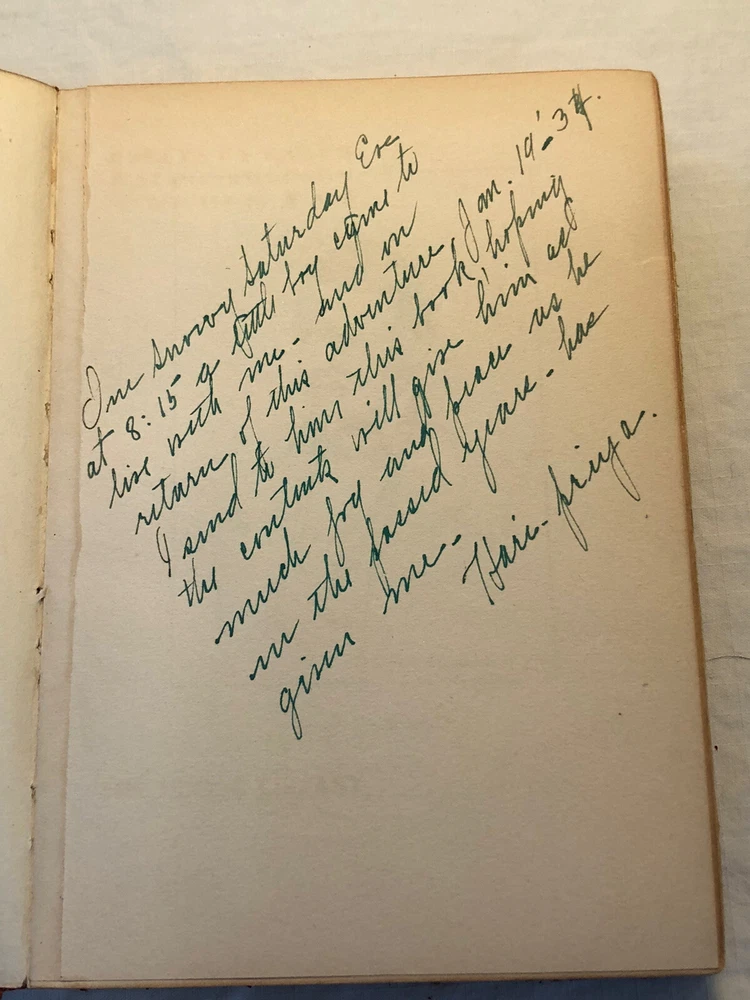 One snowy Saturday Eve
at 8:15 a little boy came to
live with me - and on
return of this adventure, Jan. 19'-34.
I send to him this book, hoping
the contents will give him as
much joy and peace as he
in the passed years - has
given me -
Hari-priya.